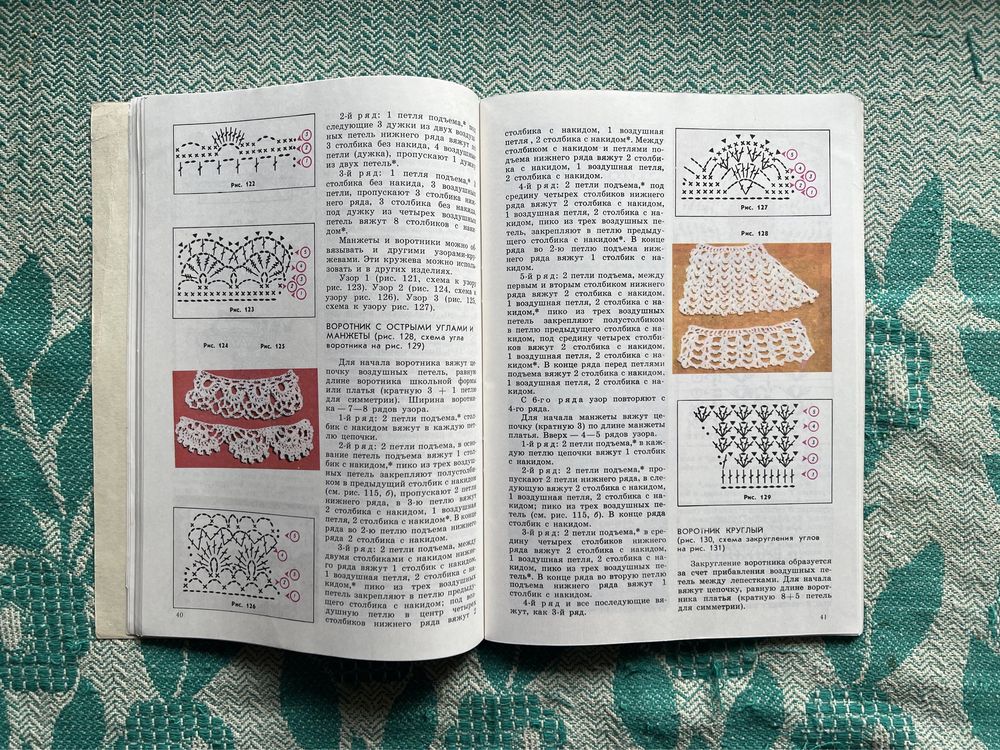 Рис. 122
Рис. 123
Рис. 124 Рис. 125
Рис. 126
40
2-й ряд: 1 петля подъема,* под
следующие 3 дужки из двух воздуш-
ных петель нижнего ряда вяжут по
3 столбика без накида, 4 воздушные
петли (дужка), пропускают 1 дужку
из двух петель*.
3-й ряд: 1 петля подъема,*
столбика без накида, 3 воздушных
петли, пропускают 3 столбика ниж-
него ряда, 3 столбика без накида,
под дужку из четырех воздушных
петель вяжут 8 столбиков с наки-
дом*.
Манжеты и воротники можно об-
вязывать и другими узорами-кру-
жевами. Эти кружева можно исполь-
зовать и в других изделиях.
Узор 1 (рис. 121, схема к узору
рис. 123). Узор 2 (рис. 124, схема к
узору рис. 126). Узор 3 (рис. 125,
схема к узору рис. 127).
ВОРОТНИК С ОСТРЫМИ УГЛАМИ И
МАНЖЕТЫ (рис. 128, схема угла
воротника на рис. 129)
Для начала воротника вяжут це-
почку воздушных петель, равную
длине воротника школьной формы
или платья (кратную 3 + 1 петлю
для симметрии). Ширина воротни-
ка — 7—8 рядов узора.
1-й ряд: 2 петли подъема,* стол-
бик с накидом вяжут в каждую пет-
лю цепочки.
2-й ряд: 2 петли подъема, в осно-
вание петель подъема вяжут 1 стол-
бик с накидом,* пико из трех воздуш-
ных петель закрепляют полустолби-
ком в предыдущий столбик с накидом
(см. рис. 115, б), пропускают 2 петли
нижнего ряда, в 3-ю петлю вяжут
2 столбика с накидом, 1 воздушная
петля, 2 столбика с накидом*. В конце
ряда во 2-ю петлю подъема нижнего
ряда 2 столбика с накидом.
3-й ряд: 2 петли подъема, между
двумя столбиками с накидом нижне-
го ряда вяжут 1 столбик с накидом,
1 воздушная петля, 2 столбика с на-
кидом,* пико из трех воздушных
петель закрепляют в петлю предыду-
щего столбика с накидом; под воз-
душную петлю в центр четырех
столбиков нижнего ряда вяжут 2
столбика с накидом, 1 воздушная
петля , 2 столбика с накидом*. Между
столбиком с накидом и петлями по-
дъема нижнего ряда вяжут 2 столби-
ка с накидом, 1 воздушная петля,
2 столбика с накидом.
4-й ряд: 2 петли подъема,* под
средину четырех столбиков нижнего
ряда вяжут 2 столбика с накидом,
1 воздушная петля, 2 столбика с на-
кидом, пико из трех воздушных пе-
тель, закрепляют в петлю предыду-
щего столбика с накидом*. В конце
ряда во 2-ю петлю подъема ниж-
него ряда вяжут 1 столбик с на-
кидом.
5-й ряд: 2 петли подъема, между
первым и вторым столбиком нижнего
ряда вяжут 2 столбика с накидом,
1 воздушная петля, 2 столбика с на-
кидом,* пико из трех воздушных
петель закрепляют полустолбиком
в петлю предыдущего столбика с на-
кидом, под средину четырех столби-
ков вяжут 2 столбика с накидом,
1 воздушная петля, 2 столбика с на-
кидом*. В конце ряда перед петлями
подъема вяжут 2 столбика с накидом,
1 воздушная петля, 2 столбика с на-
кидом.
С 6-го ряда узор повторяют с
4-го ряда.
Для начала манжеты вяжут це-
почку (кратную 3) по длине манжеты
платья. Вверх — 4—5 рядов узора.
1-й ряд: 2 петли подъема,* в каж-
дую петлю цепочки вяжут 1 столбик
с накидом.
2-й ряд: 2 петли подъема,* про-
пускают 2 петли нижнего ряда, в сле-
дующую вяжут 2 столбика с накидом,
1 воздушная петля, 2 столбика с на-
кидом; пико из трех воздушных петель
(см. рис. 115, б). В конце ряда
столбик с накидом.
3-й ряд: 2 петли подъема,* в сре-
дину четырех столбиков нижнего
ряда вяжут 2 столбика с накидом,
1 воздушная петля, 2 столбика с на-
кидом, пико из трех воздушных пе-
тель*. В конце ряда во вторую петлю
подъема нижнего ряда вяжут 1
столбик с накидом.
4-й ряд и все последующие вя-
жут, как 3-й ряд.
Рис. 127
Рис. 128
Рис. 129
ВОРОТНИК КРУГЛЫЙ
(рис. 130, схема закругления углов
на рис. 131)
Закругление воротника образуется
за счет прибавления воздушных пе-
тель между лепестками. Для начала
вяжут цепочку, равную длине ворот-
ника платья (кратную 8+5 петель
для симметрии).
41